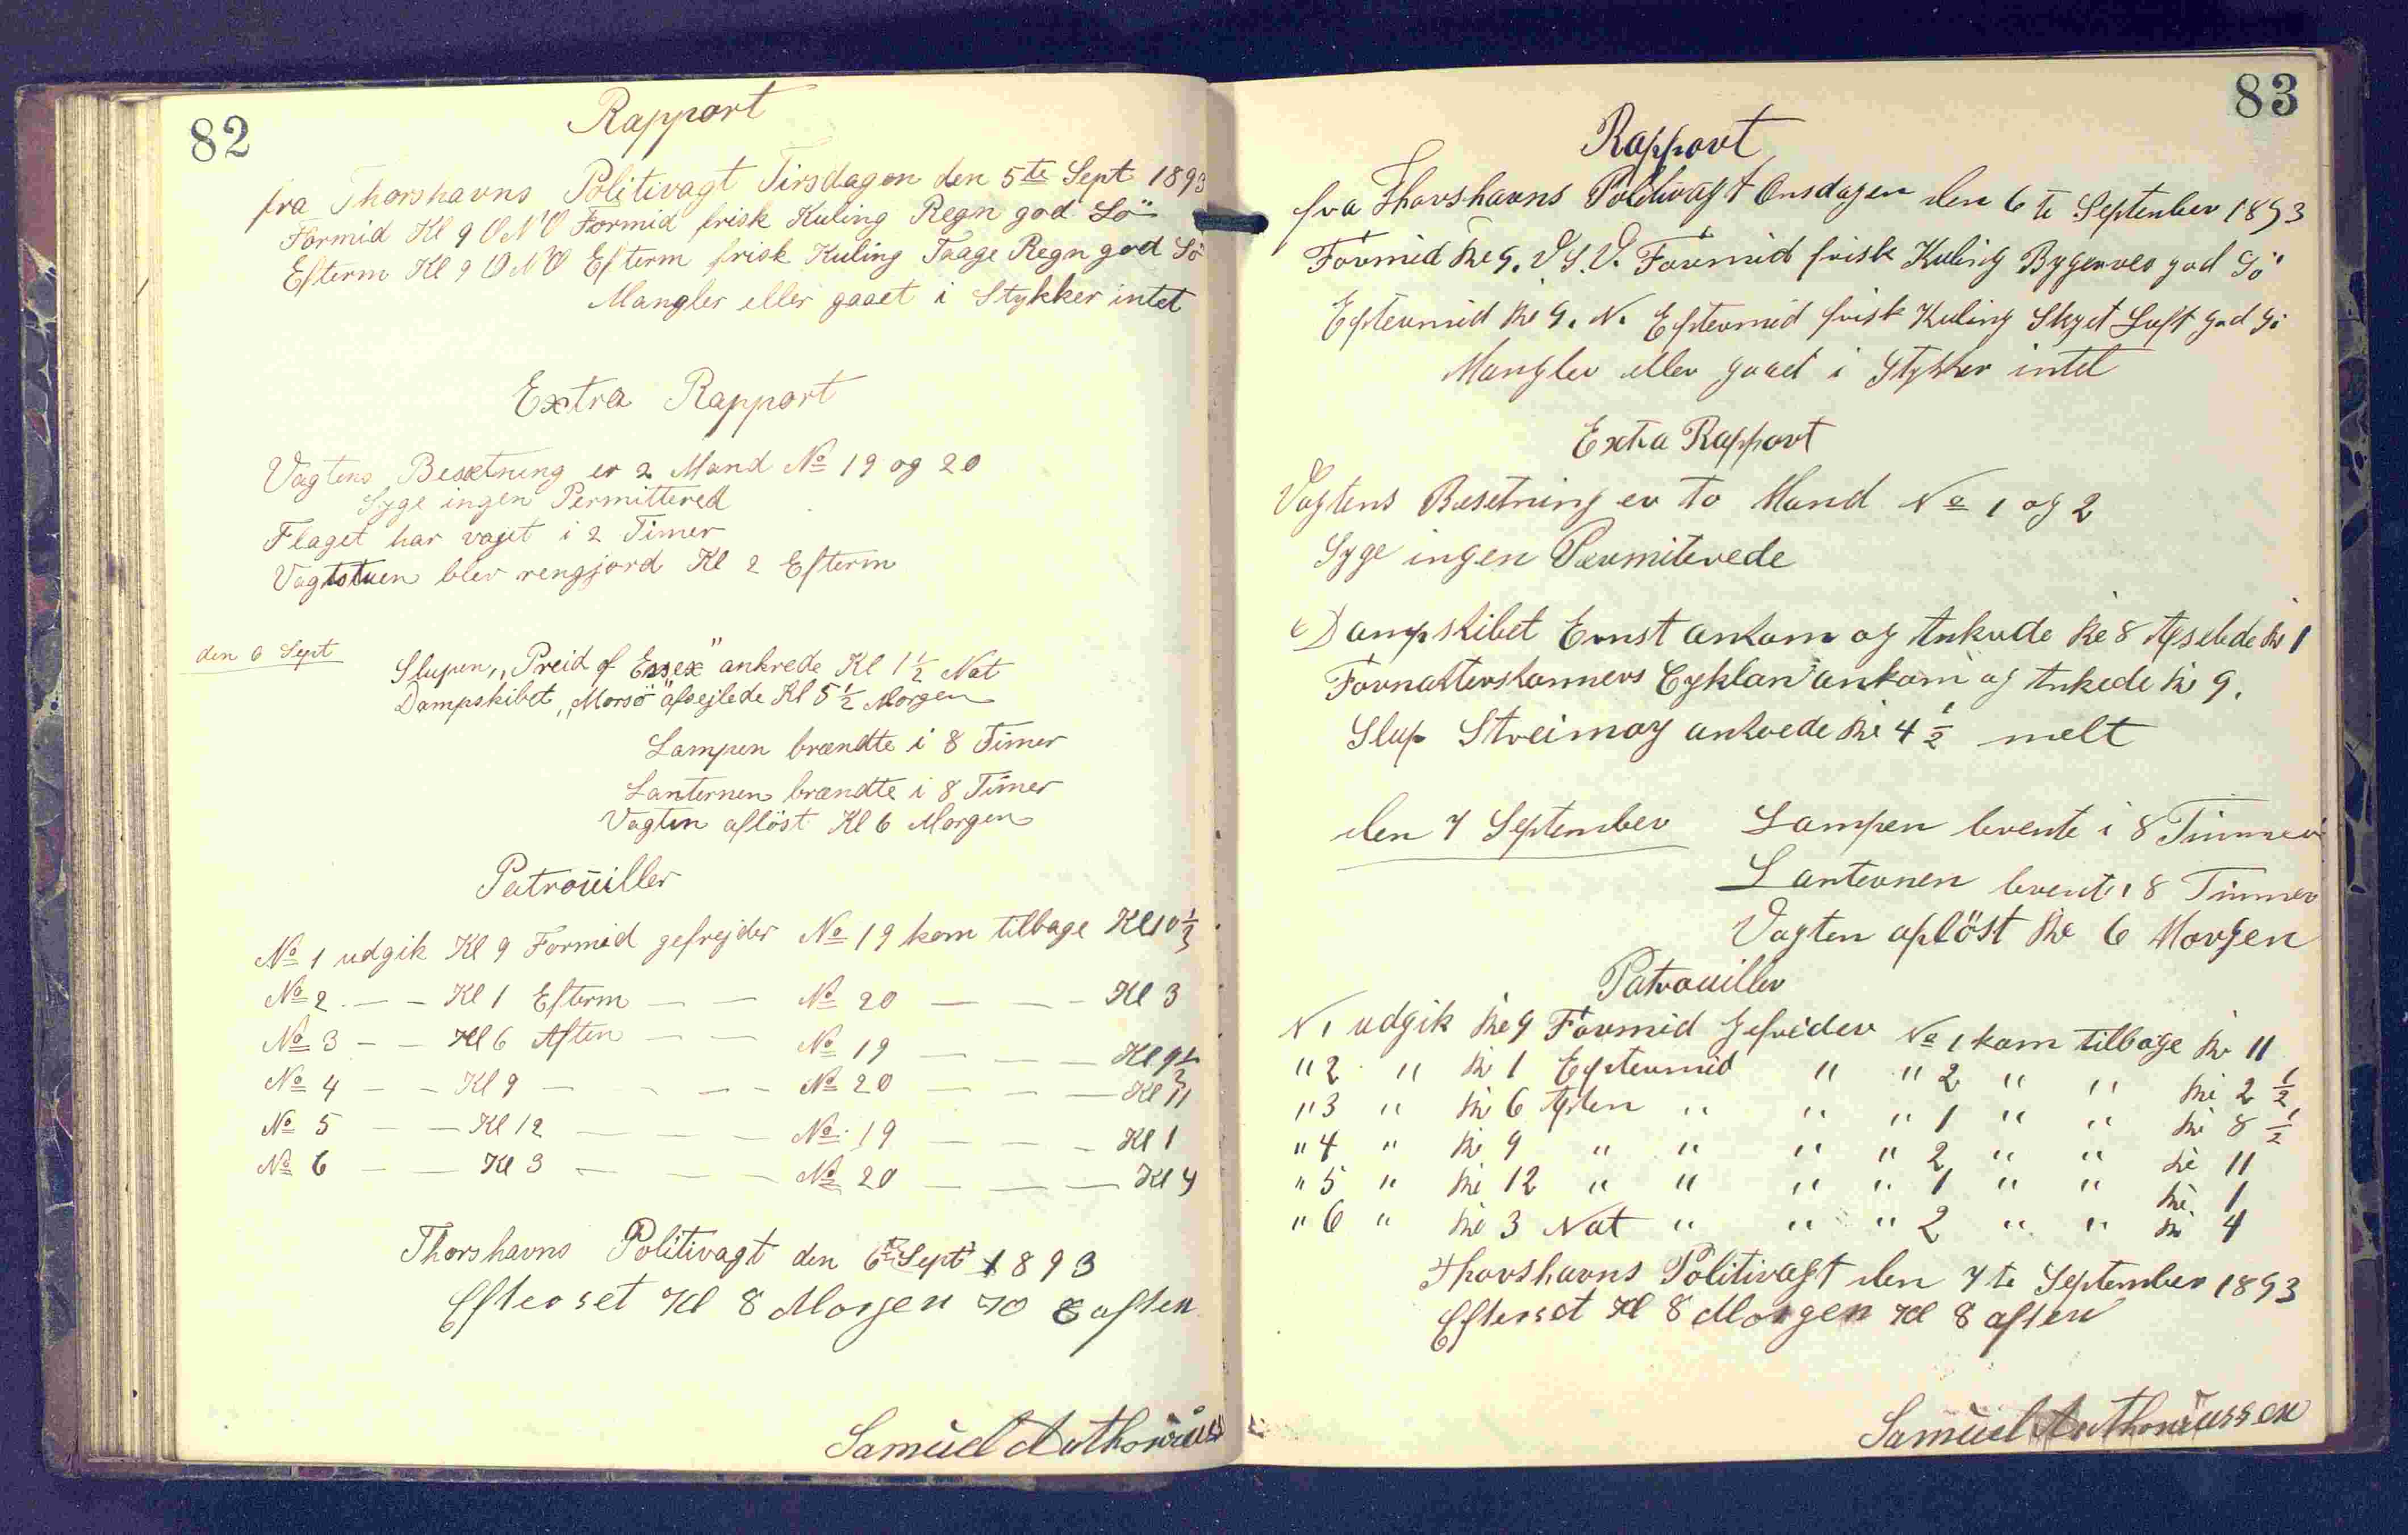 82
Rapport
fra Thorshavns Politivagt Tirsdagen den 5te Sept 1893
Formid Kl 9 ONO Formid frisk Kuling Regn god Sö
Efterm Kl 9 ONO Efterm frisk Kuling Taage Regn god Sö
Mangler eller gaaet i Stykker intet
Extra Rapport
Vagtens Besætning er 2 Mand No 19 og 20
Syge ingen Permittered
Flaget har vajet i 2 Timer
Vagtstuen blev rengjord Kl 2 Efterm
den 6 Sept
Slupen „Preid of Essex" ankrede Kl 1½ Nat
Dampskibet „Morsö" afsejlede Kl 5½ Morgen
Lampen brændte i 8 Timer
Lanternen brændte i 8 Timer
Vagten aflöst Kl 6 Morgen
Patrouiller
No 1 udgik Kl 9 Formid gefrejder No 19 kom tilbage Kl 10½
No 2 — — Kl 1 Efterm — — No 20 — — — Kl 3
No 3 — — Kl 6 Aften — — No 19 — — — Kl 9½
No 4 — — Kl 9 — — — — No 20 — — — Kl 11
No 5 — — Kl 12 — — — — No 19 — — — Kl 1
No 6 — — Kl 3 — — — — No 20 — — — Kl 4
Thorshavns Politivagt den 6te Sept 1893
Efterset Kl 8 Morgen 8 aften
Samuel Anthoniuss
83
Rapport
fra Thorshavns Politivagt Onsdagen den 6te September 1893
Formid Kl 9. V.S.V. Formid frisk Kuling Bygerveo god Sö
Eftermid Kl 9. N. Eftermid frisk Kuling Skyet Luft god Sö
Mangler eller gaaet i Stykker intet
Extra Rapport
Vagtens Besetning er to Mand No 1 og 2
Syge ingen Permiterede
Dampskibet Ernst ankom og Ankrde Kl 8 Afselede Kl 1
Slup Streimoy ankrede Kl 4½ melt
den 7 September Lampen brente i 8 Timmer
Lanternen brente i 8 Timmer
Vagten aplöst Kl 6 Morgen
Patrouiller
N 1 udgik Kl 9 Formid Gefreider No 1 kom tilbage Kl 11
" 2 " Kl 1 Eftermid " " 2 " " Kl 2½
" 3 " Kl 6 Aften " " " 1 " " Kl 8½
" 4 " Kl 9 " " " " 2 " " Kl 11
" 5 " Kl 12 " " " " 1 " " Kl 1
" 6 " Kl 3 Nat " " " 2 " " Kl 4
Thorshavns Politivagt den 7te September 1893
Efterset Kl 8 Morgen Kl 8 aften
Samuel Anthoniussen